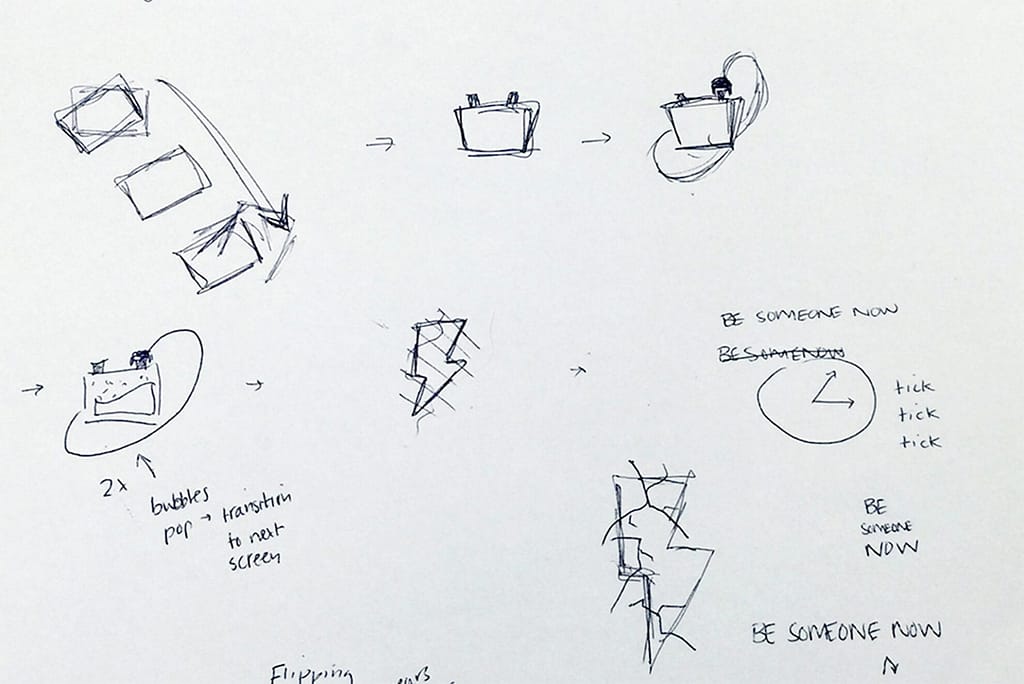 BE SOMEONE NOW
BE SOMENOW
tick
tick
tick
2x
bubbles
pop → transition
to next
screen
BE
SOMEONE
NOW
BE SOMEONE NOW
Flipping